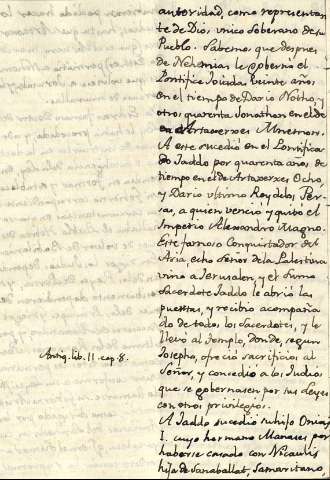 autoridad, como representan
te de Dios, unico soberano de su
Pueblo. Sabemos que despues
de Nehemias le governó el
Pontifice Joiada veinte años,
en el tiempo de Dario Notho, y
otros quarenta Jonathan en el de
Artaxerxes Mnemon.
A este sucedió en el Pontifica
do Jaddo por quarenta años, de
tiempo en el de Artaxerxes Ocho
y Dario ultimo Rey de los Per-
sas, a quien venció y quitó el
Imperio Alexandro Magno.
Este famoso Conquistador del
Asia, echo señor de la Palestina
vino a Jerusalen, y el sumo
sacerdote Jaddo le abrió las
puertas, y recibio acompaña
do de todos los sacerdotes, y le
llevo al templo, donde, segun
Josepho, ofreció sacrificios al
Señor, y concedió a los Judios
que se gobernasen por sus Leyes
con otros privilegios.
Antiq. lib. 11. cap. 8.
A Jaddo sucedió su hijo Onias
I. cuyo hermano Manases por
haberse casado con Nicaulis
hija de Sanaballat, Samaritano,